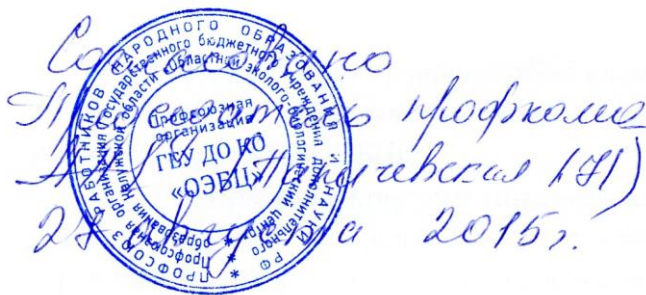 Согласовано
Председатель профкома
27 августа 2015г.
ПРОФСОЮЗ РАБОТНИКОВ НАРОДНОГО ОБРАЗОВАНИЯ И НАУКИ РФ
Профсоюзная организация Государственного бюджетного учреждения дополнительного образования Калужской области «Областной эколого-биологический центр»
Профсоюзная
организация
ГБУ ДО КО
«ОЭБЦ»